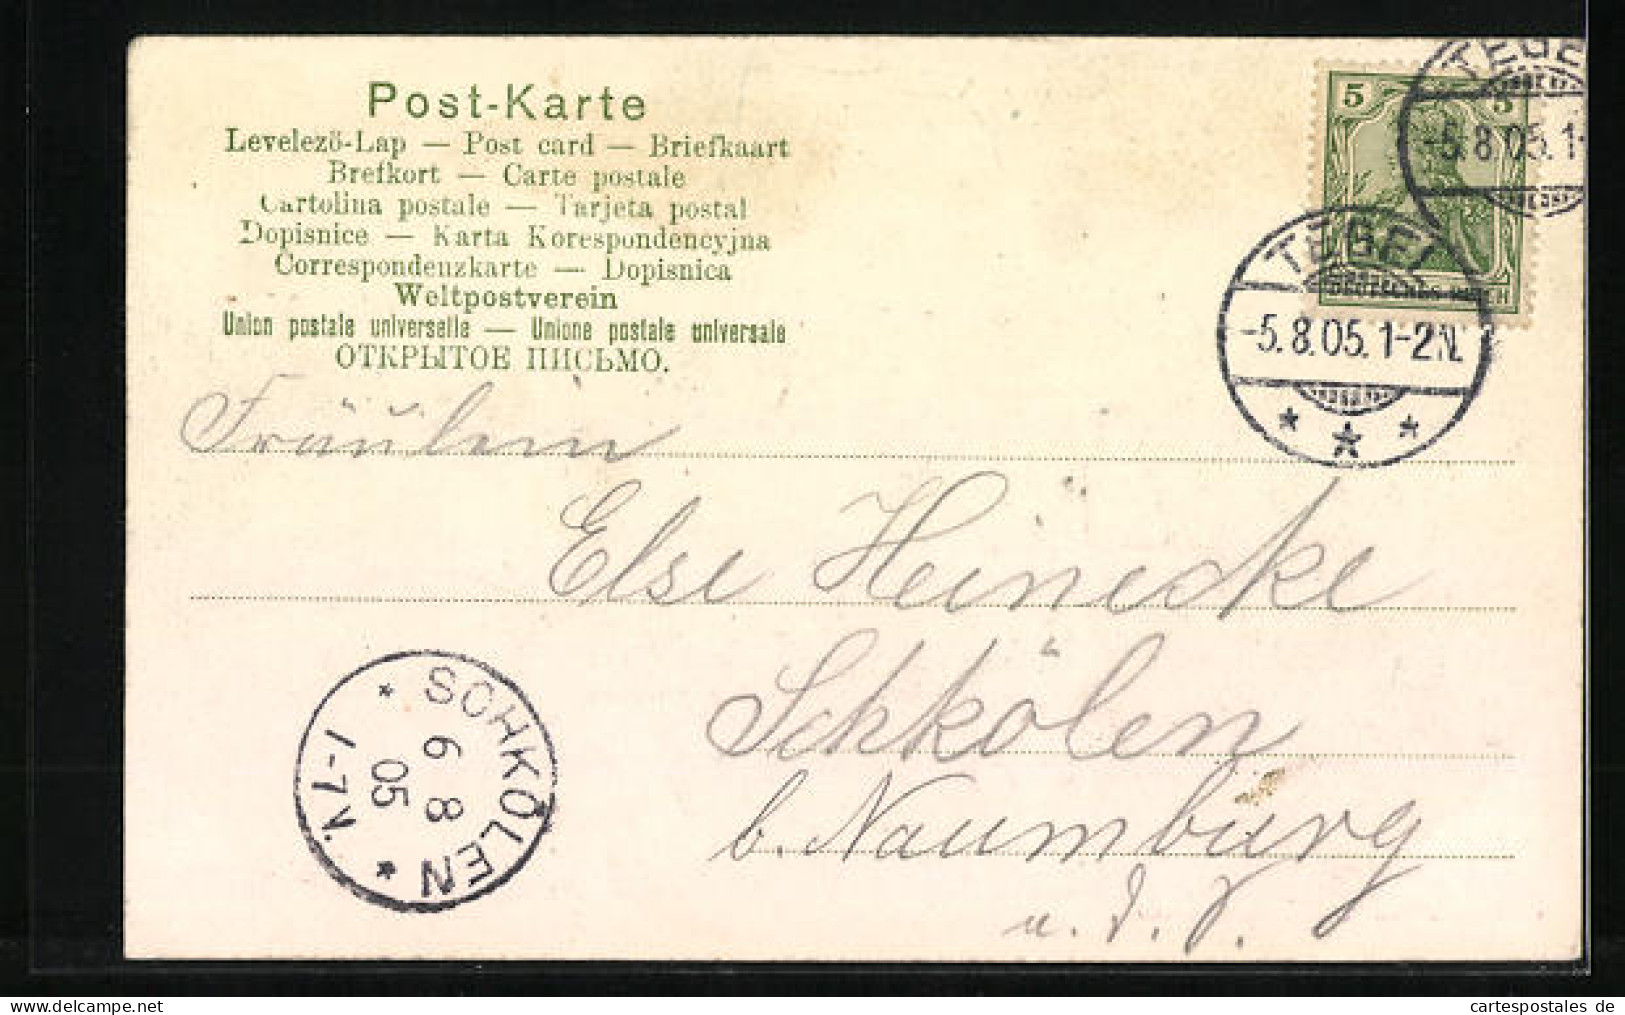 Post-Karte
Levelező-Lap — Post card — Briefkaart
Brefkort — Carte postale
Cartolina postale — Tarjeta postal
Dopisnice — Karta Korespondencyjna
Correspondenzkarte — Dopisnica
Weltpostverein
Union postale universelle — Unione postale universale
ОТКРЫТОЕ ПИСЬМО.
5 5
DEUTSCHES REICH
TEGEL
-5.8.05. 1-
TEGEL
-5.8.05. 1-2N.
* * *
Fräulein
Else Heinecke
Schkölen
b. Naumburg
* SCHKÖLEN *
6 8
05
1-7N.
cartespostales de